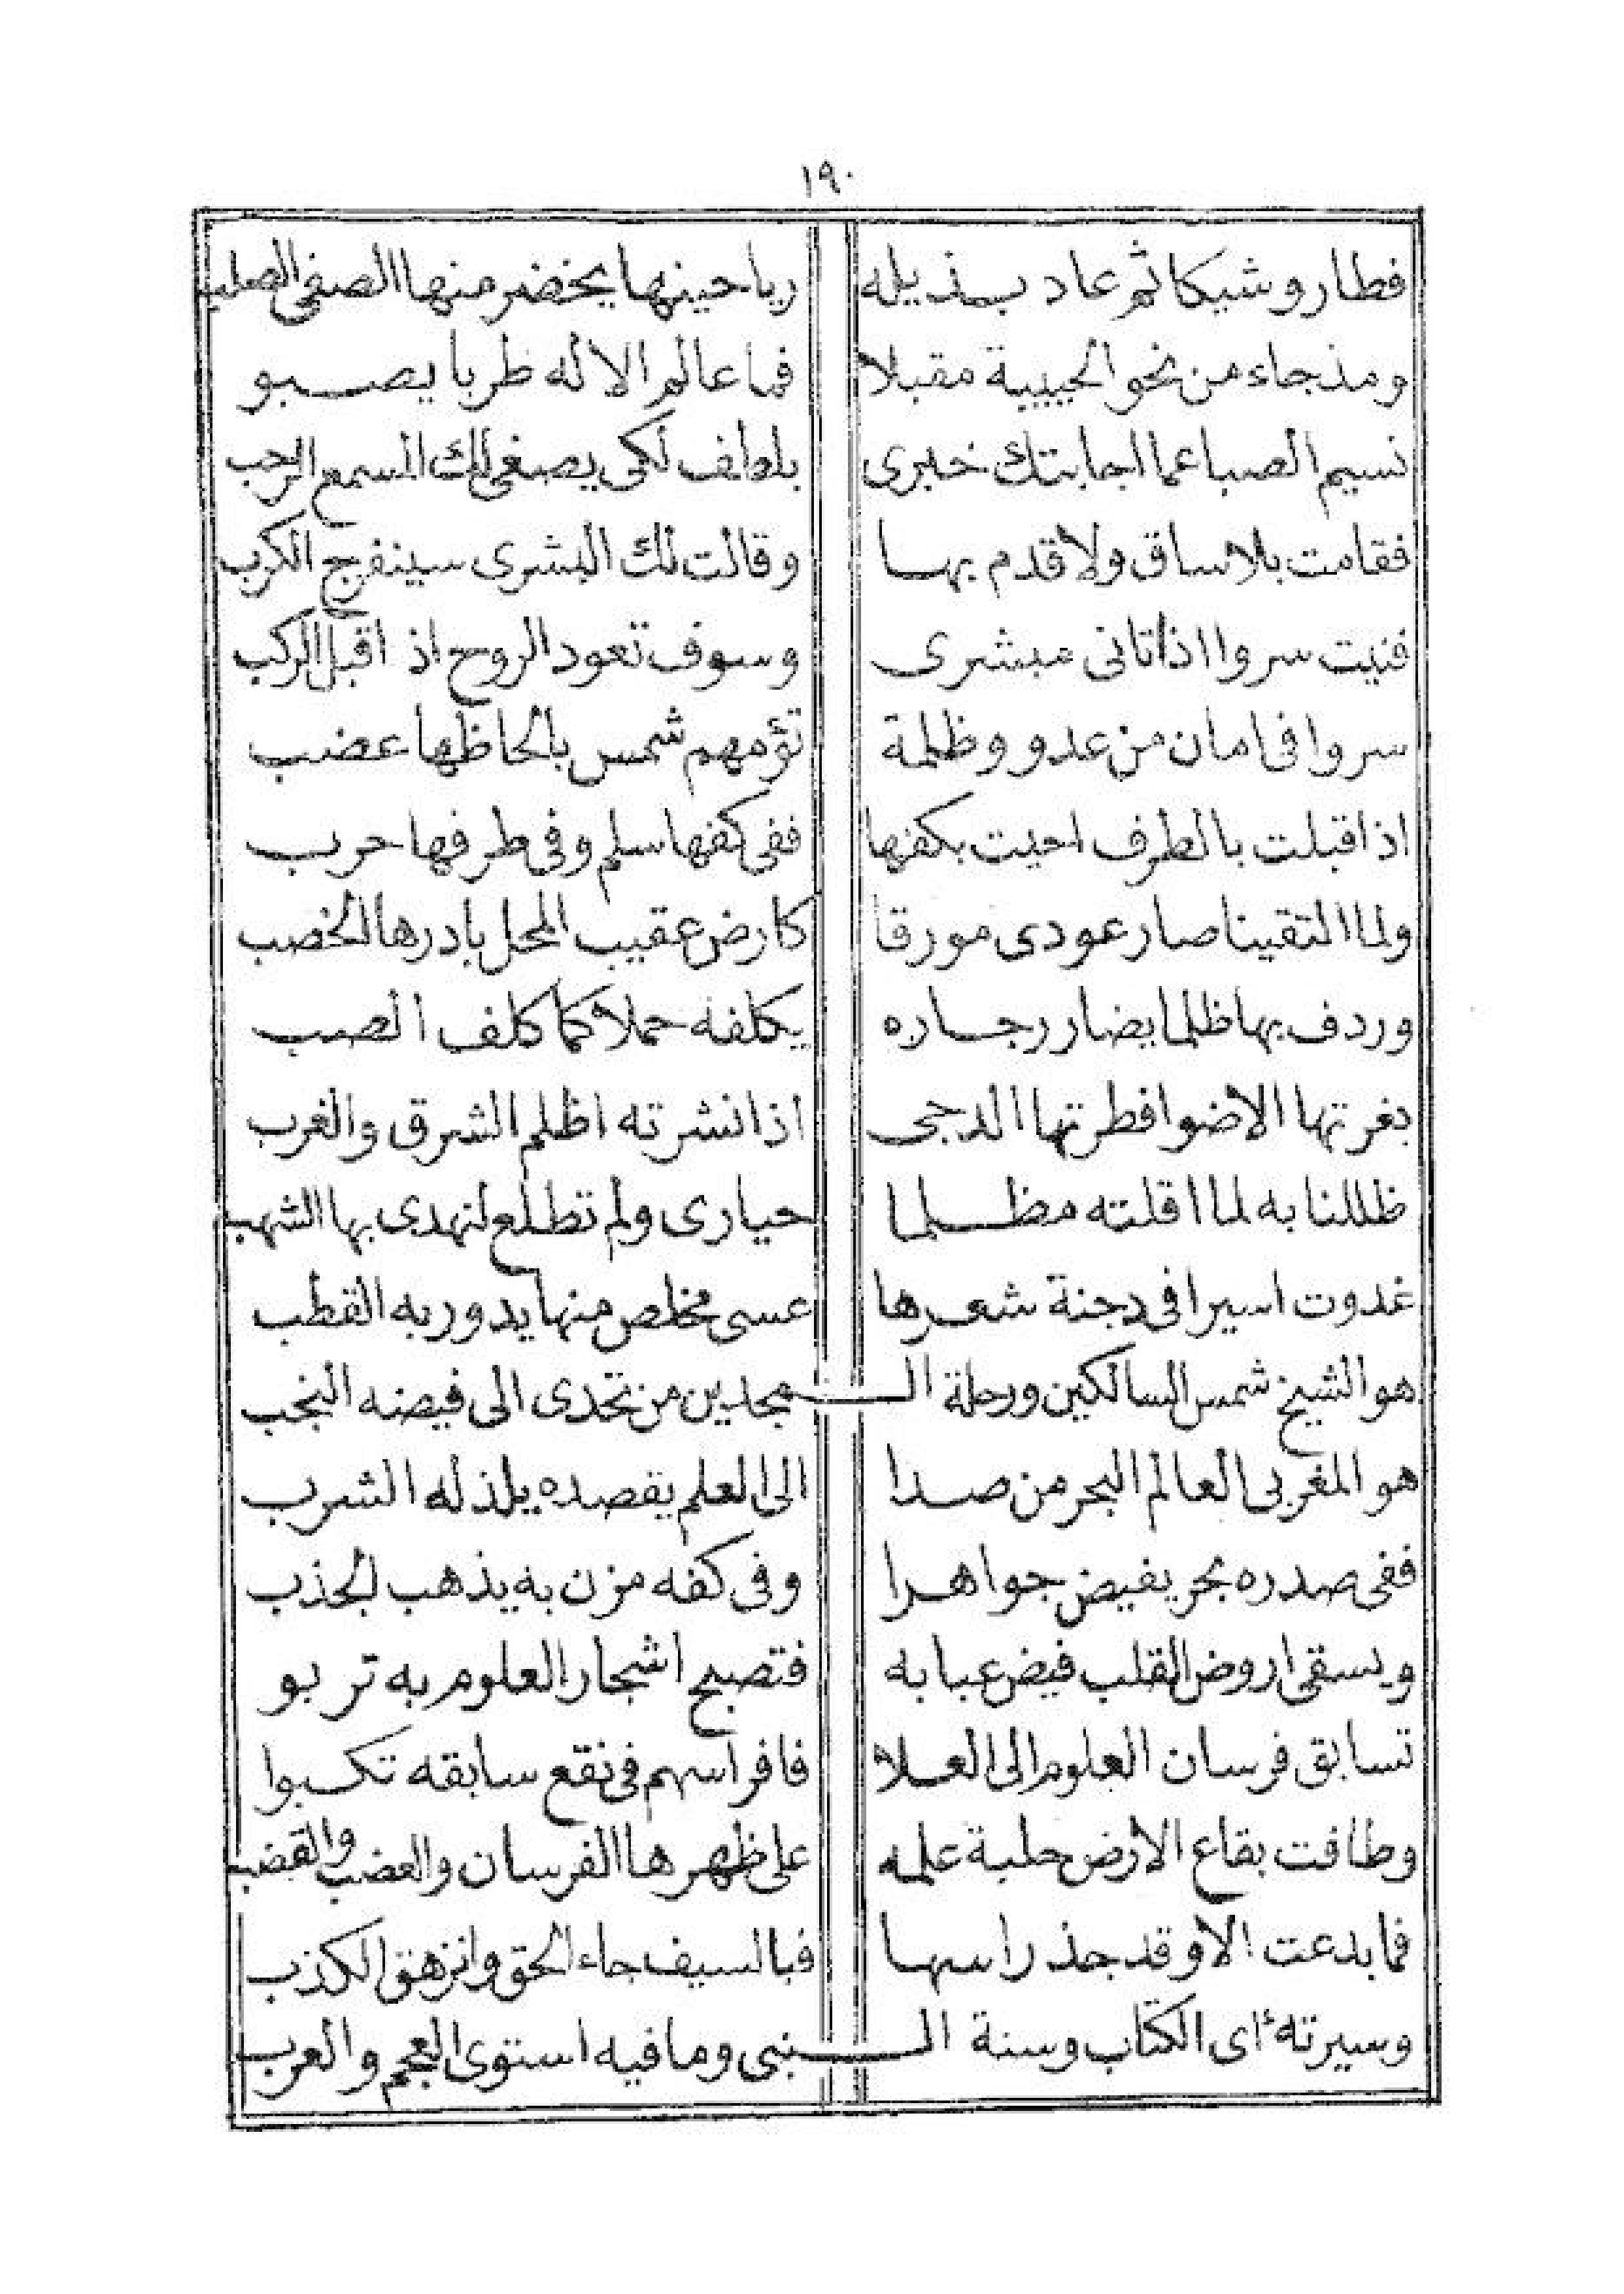 ١٩٠
فطار وشيكا ثم عاد بذيله رياحينها يخضر منها الصفى الصلب
ومذ جاء من نحو الحبيبة مقبلا فما عالم الا له طربا يصبو
نسيم الصبا عما اجابتك خبرى بلطف لكى يصغى لك السمع الرحب
فقامت بلا ساق ولا قدم بها وقالت لك البشرى سينفرج الكرب
فنيت سروا اذا تانى مبشرى وسوف تعود الروح اذ اقبل الركب
سروا فى امان من عدو وظلمة تؤمهم شمس بالحاظها عضب
اذا قبلت بالطرف احيت بكفها ففى كفها سلم وفى طرفها حرب
ولما التقينا صار عودى مورقا كارض عقيب المحل بادرها الخصب
وردف بها ظلما يضار رجاره يكلفه حملا كما كلف الصب
بغرتها الاضوا فطرتها الدجى اذا نشرته اظلم الشرق والغرب
ظللنا به لما اقلته مظلما حيارى ولم تطلع لنهدى بها الشهب
غدوت اسيرا فى دجنة شعرها عسى مخلص منها يدور به القطب
هو الشيخ شمس السالكين ورحلة الـ ـمجدين من تحدى الى فيضه النجب
هو المغربى العالم البحر من صدا الى العلم يقصده يلذ له الشرب
ففى صدره بحر يفيض جواهرا وفى كفه مزن به يذهب الجذب
ويسقى اروض القلب فيض عبابه فتصبح اشجار العلوم به تربو
تسابق فرسان العلوم الى العلا فافراسهم فى نقع سابقه تكبوا
وطافت بقاع الارض حلبة علمه على ظهرها الفرسان والعضب والقضب
فما بدعت الا وقد جذ راسها فبالسيف جاء الحق وانزهق الكذب
وسيرته اى الكتاب وسنة الـ ـنبى وما فيه استوى العجم والعرب